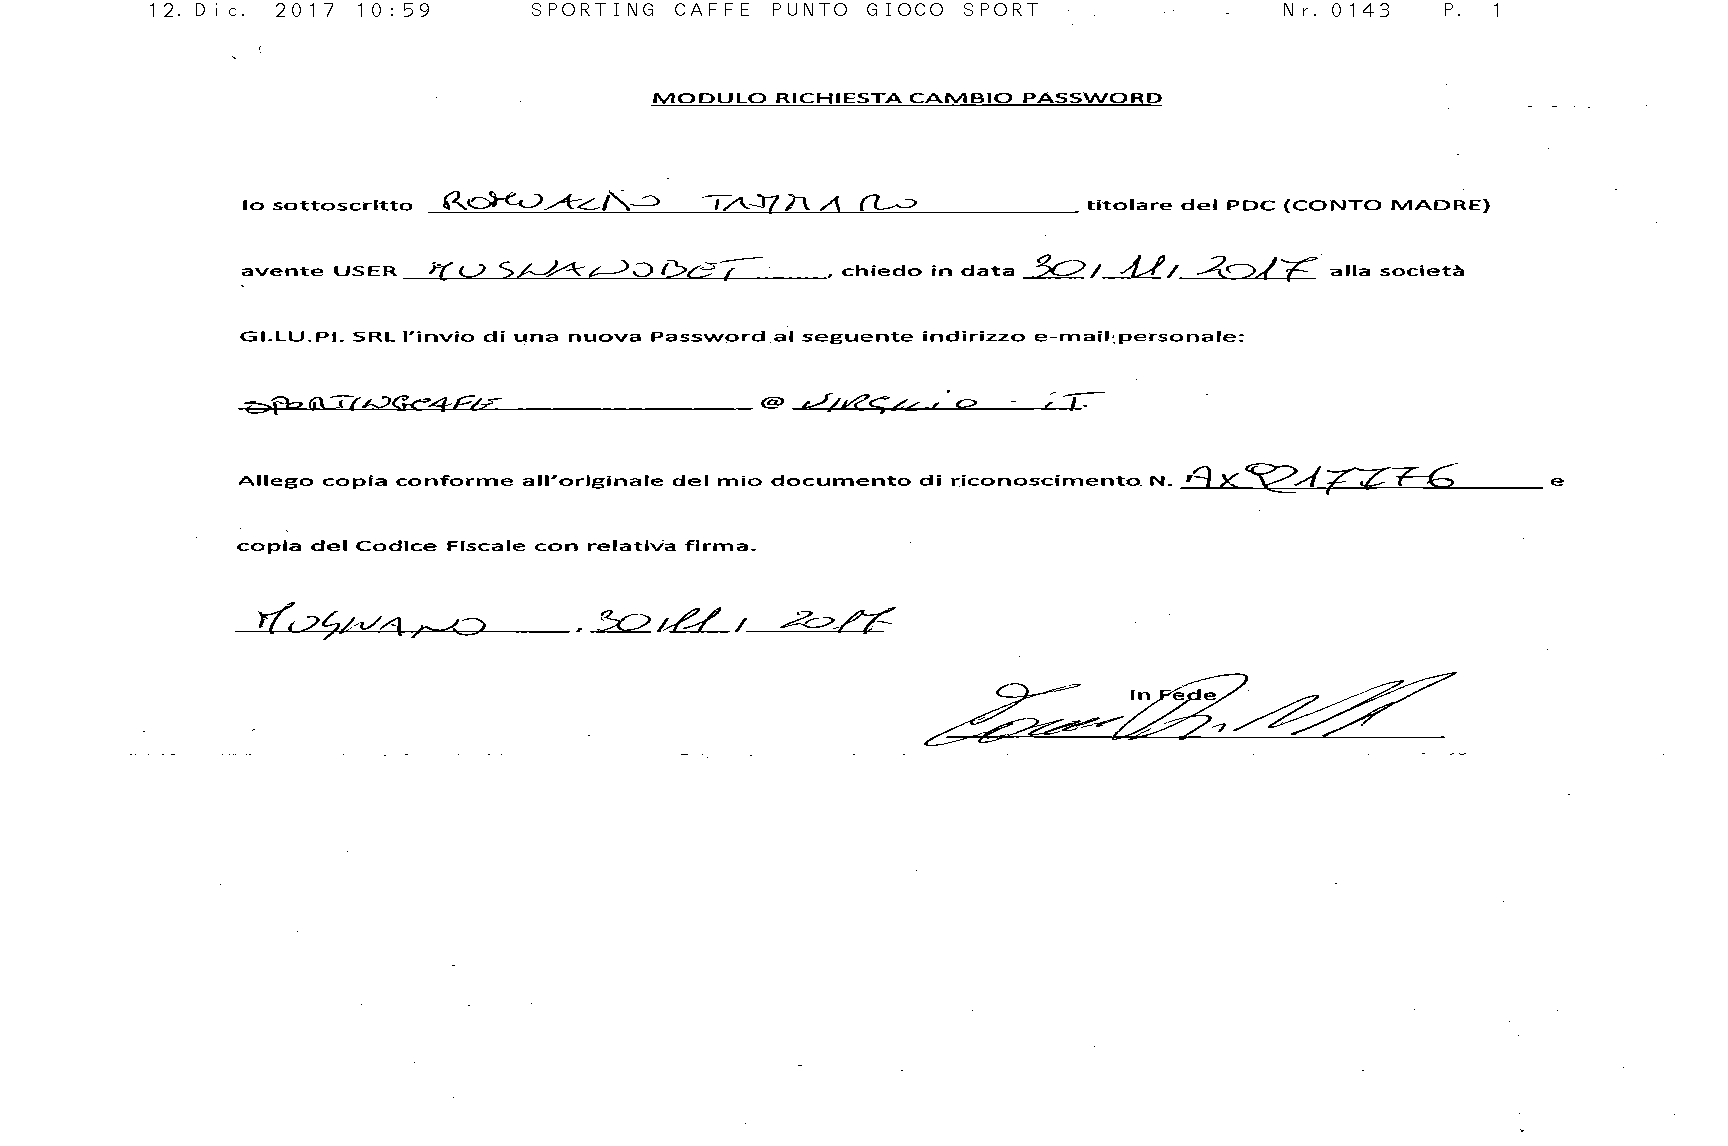 12. Dic. 2017 10:59 SPORTING CAFFE PUNTO GIOCO SPORT Nr. 0143 P. 1
MODULO RICHIESTA CAMBIO PASSWORD
Io sottoscritto ROMUALDO TAMMARO titolare del PDC (CONTO MADRE)
avente USER MUGNANOBET, chiedo in data 30/11/2017 alla società
GI.LU.PI. SRL l'invio di una nuova Password al seguente indirizzo e-mail personale:
SPORTINGCAFE @ VIRGILIO.IT
Allego copia conforme all'originale del mio documento di riconoscimento N. e
copia del Codice Fiscale con relativa firma.
MUGNANO, 30/11/2017
In Fede